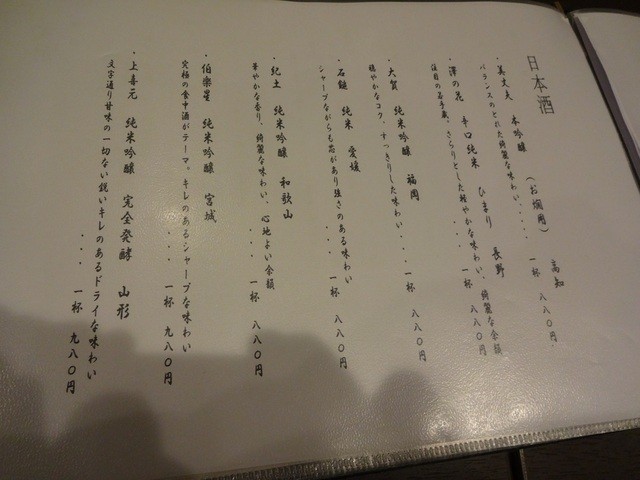 日本酒
・美丈夫 本吟醸 (お燗用) 高知
バランスのとれた綺麗な味わい、・・・・ 一杯 八八〇円
・澤の花 辛口純米 ひまり 長野
注目の若手蔵。さらりとした軽やかな味わい、綺麗な余韻
・・・ 一杯 八八〇円
・大賀 純米吟醸 福岡
穏やかなコク、すっきりした味わい・・・・ 一杯 八八〇円
・石鎚 純米 愛媛
シャープながらも芯があり強さのある味わい
・・・ 一杯 八八〇円
・紀土 純米吟醸 和歌山
華やかな香り、綺麗な味わい、心地よい余韻
・・・ 一杯 八八〇円
・伯樂星 純米吟醸 宮城
究極の食中酒がテーマ。キレのあるシャープな味わい
・・・ 一杯 九八〇円
・上喜元 純米吟醸 完全発酵 山形
文字通り甘味の一切ない鋭いキレのあるドライな味わい
・・・ 一杯 九八〇円